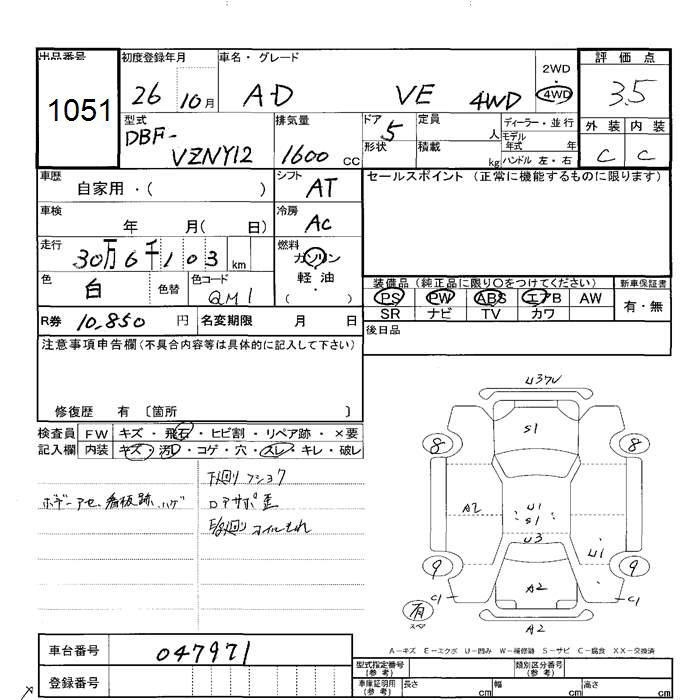 出品番号
1051
初度登録年月
26 10月
車名・グレード
AD VE 4WD
2WD
・
4WD
評価点
3.5
外装 内装
C C
型式
DBF-
VZNY12
排気量
1600 cc
ドア
5
形状
定員
人
積載
kg
ディーラー・並行
モデル
年式 年
ハンドル 左・右
車歴
自家用・( )
シフト
AT
車検
年 月( 日)
冷房
AC
走行
30万6千103 km
燃料
ガソリン
軽油
( )
色
白
色替
色コード
QM1
R券 10,850 円
名変期限 月 日
セールスポイント (正常に機能するものに限ります)
装備品(純正品に限り○をつけてください)
PS PW ABS エアB AW
SR ナビ TV カワ
新車保証書
有・無
後日品
注意事項申告欄(不具合内容等は具体的に記入して下さい)
修復歴 有 〔箇所 〕
検査員
記入欄
FW キズ・飛石・ヒビ割・リペア跡・×要
内装 キズ・汚れ・コゲ・穴・スレ・キレ・破レ
下廻り フショク
ボデーアセ、看板跡、ハゲ
ロアサポ歪
E/g廻り オイルもれ
U3ワレ
S1
8 8
A2
U1
S1
U3
U1
9 9
C1 C1
A2
有
スペア
A2
A-キズ E-エクボ U-凹み W-補修跡 S-サビ C-腐食 XX-交換済
車台番号
047971
登録番号
型式指定番号
(参考)
類別区分番号
(参考)
車庫証明用
(参考)
長さ cm
幅 cm
高さ cm